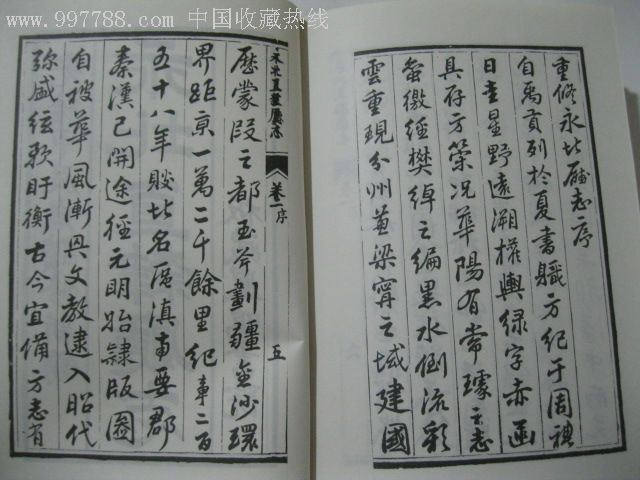 www.997788.com 中国收藏热线
重修永北廳志序
自禹貢列於夏書職方紀于周禮
日查星野遠溯權輿綠字赤函
具存方策况華陽有常璩之志
蠻徼經樊綽之編黑水倒流彩
雲重現分州兼梁甯之域建國
永北直隸廳志
卷一序
五
歷蒙段之都玉斧劃疆金沙環
界距京一萬二千餘里紀年二百
五十八年此名區滇南要郡
秦漢已開途徑元明始隸版圖
自被華風漸文教逮入昭代
弥盛弦歌盱衡古今宜備方志有